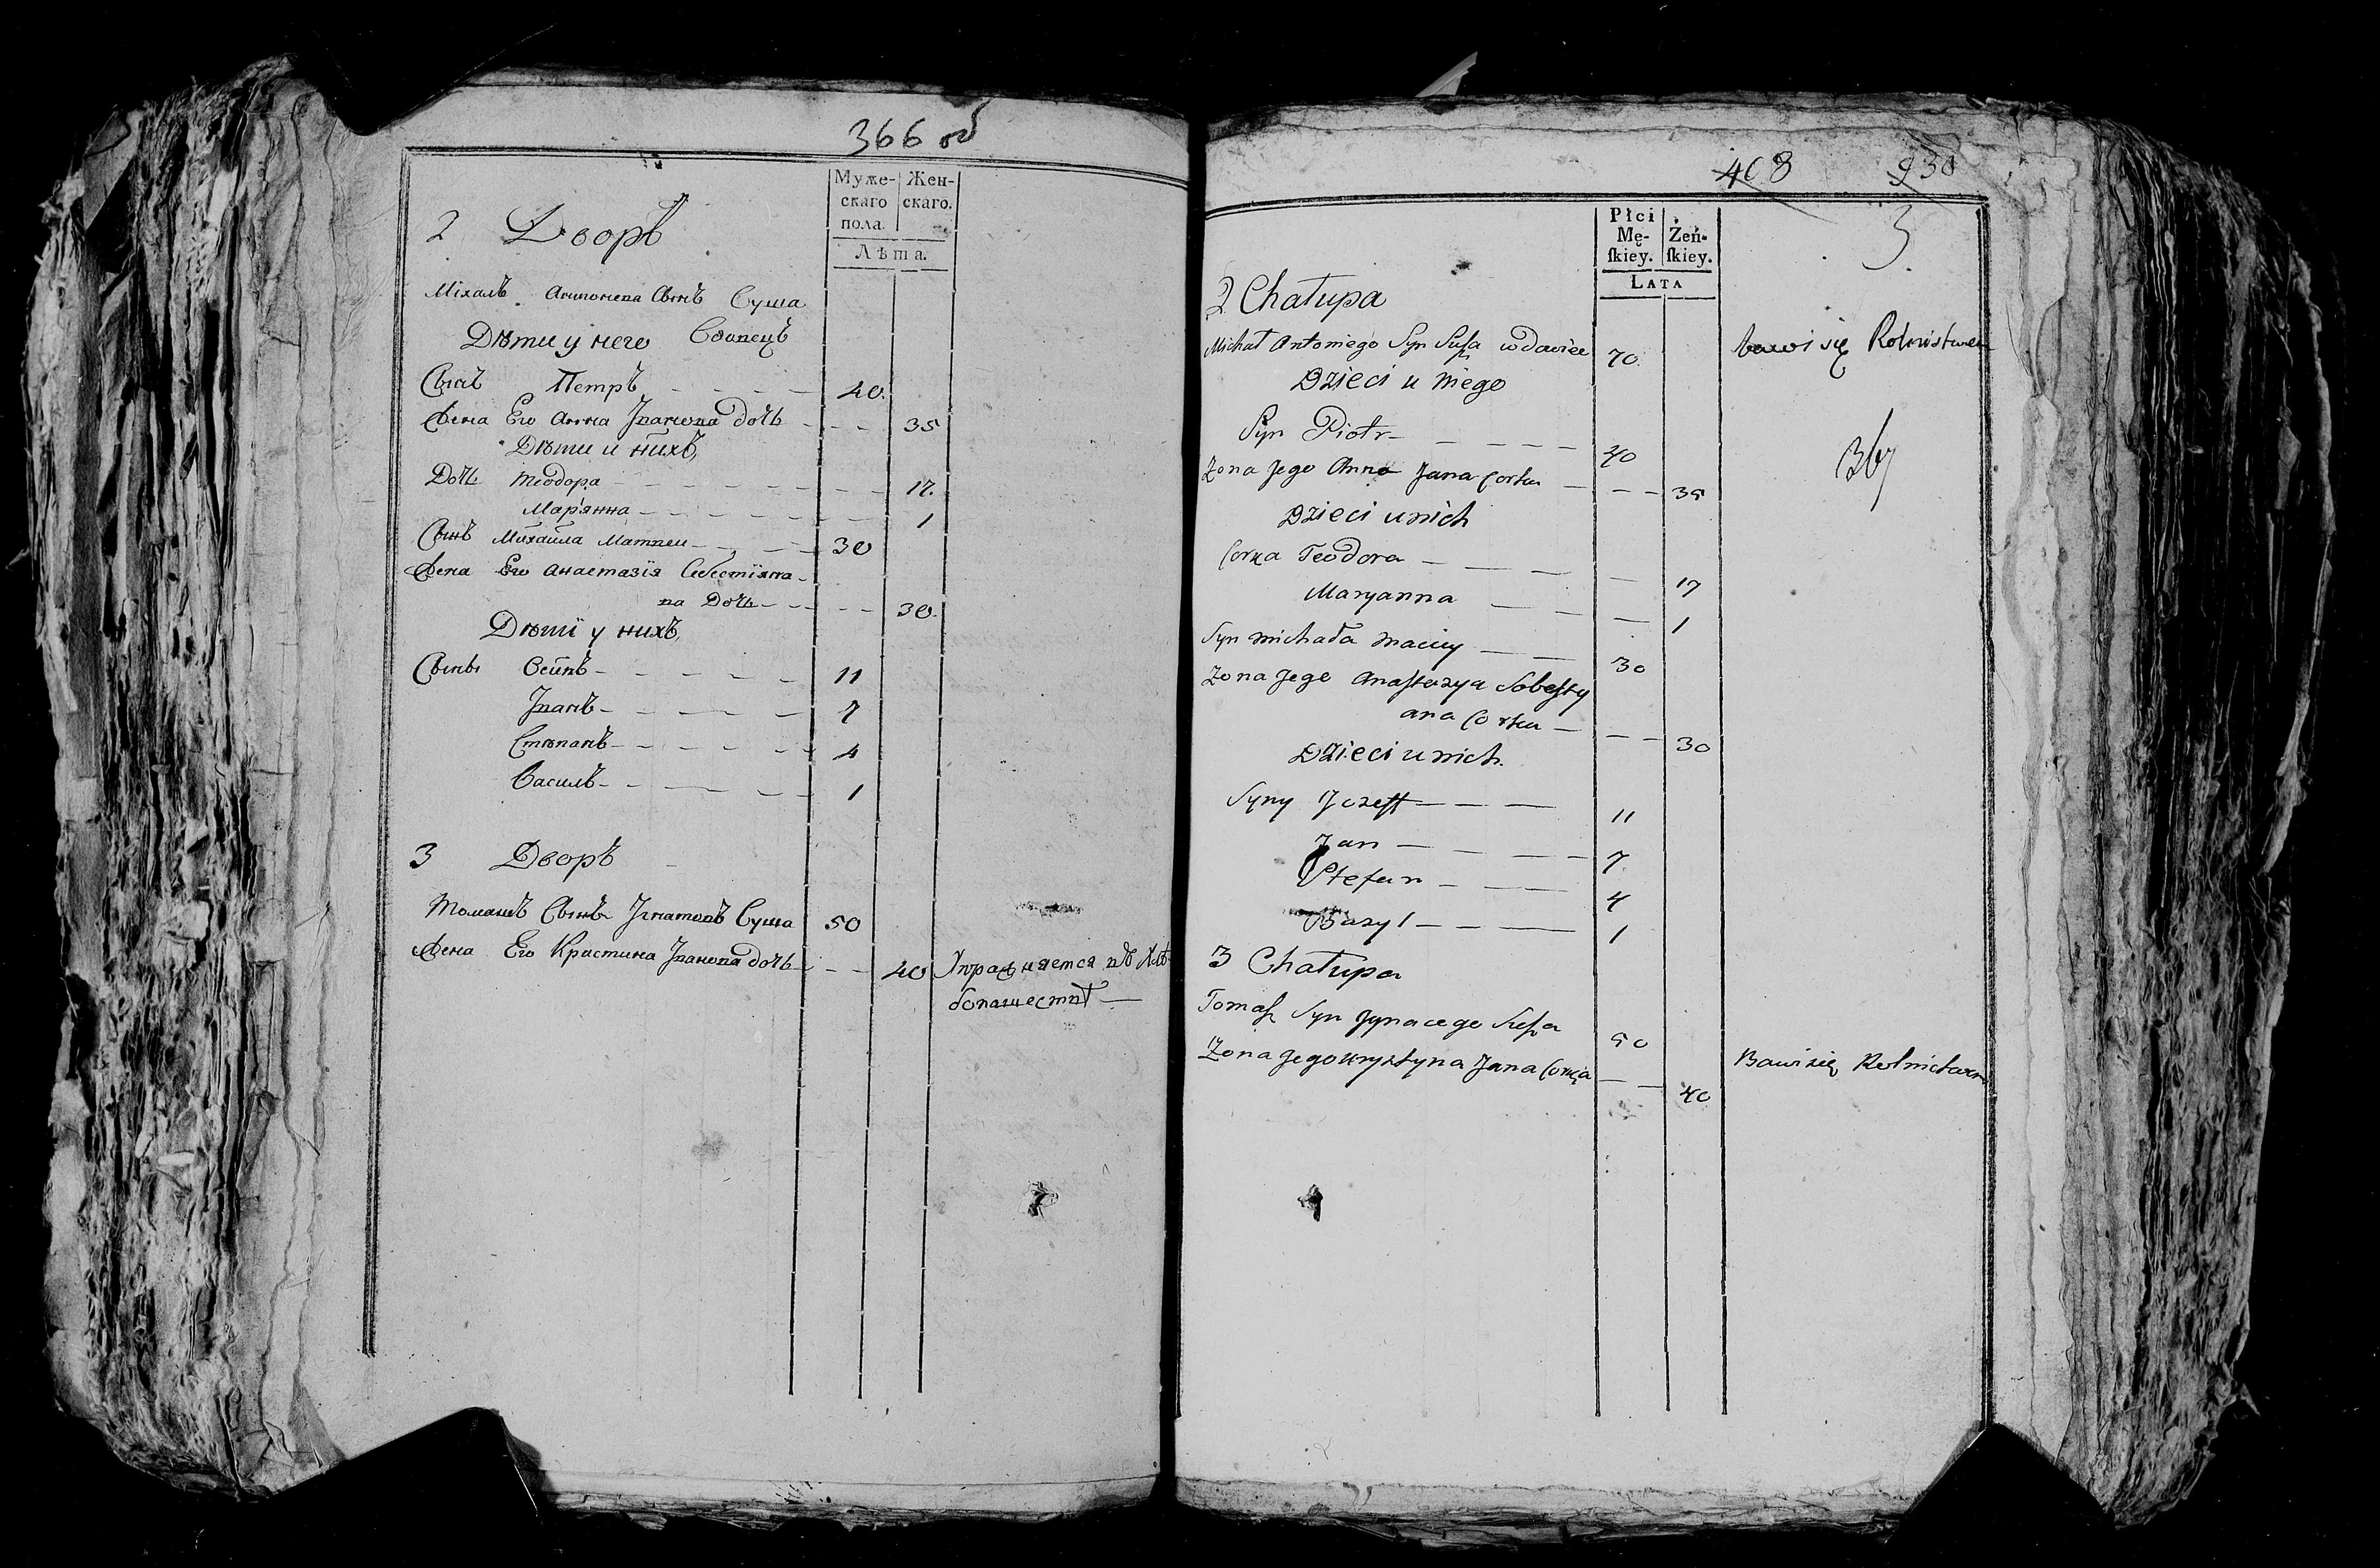 366 об
Муже-
скаго
пола.
Жен-
скаго.
Лѣта.
2 Дворъ
Міхалъ Антонева Сынъ Суша
Дѣти у него Вдовецъ
Сынъ Петръ - - - - 40.
Жена Его Анна Іванова дочь - - - 35
Дѣти и нихъ,
Дочь Теодора - - - - - 17.
Марьянна - - - - - 1
Сынъ Михайла Матвеи - - - 30
Жена Его Анастазія Себестіяно-
ва Дочь - - - - 30.
Дѣті у нихъ,
Сыны Осипъ - - - - - 11
Іванъ - - - - - 7
Стѣпанъ - - - - - 4
Василъ - - - - - 1
3 Дворъ
Томашъ Сынъ Игнатовъ Суша 50
Жена Его Крастина Іванова дочь - - - 40 Упражняется въ Хлѣ-
бопашествѣ —
408 930
3
Płci
Mę-
ſkiey.
Żeń-
ſkiey.
Lata
2 Chałupa
Michał Antoniego Syn Suſza wdowiec 70. bawi się Rolnictwem
Dzieci u niego
367
Syn Piotr - - - - - 40
Zona Jego Anna Jana Corka - - - 35
Dzieci u nich
Corka Teodora - - - - - 17
Maryanna - - - - 1
Syn michała maciey - - 30
Zona Jego Anaſtazya Sobeſty
ana Corka - - - 30
Dzieci u nich.
Syny Jozeff - - - 11
Jan - - - - - 7.
Stefan - - - 4
Bazyl - - - - 1
3 Chałupa
Tomaſz Syn Jgnacego Suſza 50
Zona Jego Krystyna Jana Corka - - 40 Bawi się Rolnictwem